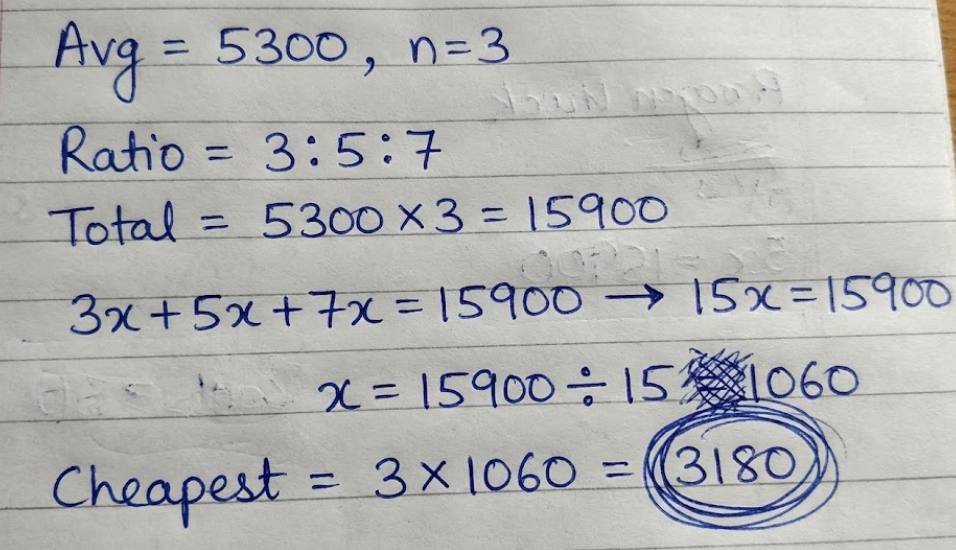 Avg = 5300, n=3
Ratio = 3:5:7
Total = 5300×3 = 15900
3x+5x+7x = 15900 → 15x = 15900
x = 15900 ÷ 15 1060
Cheapest = 3×1060 = 3180